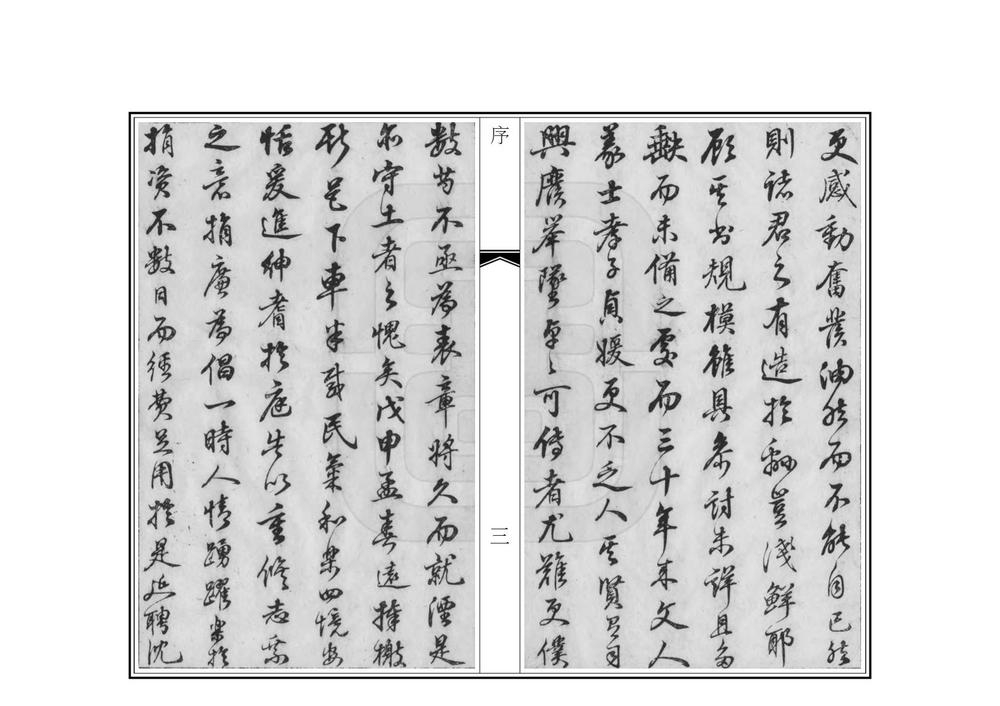 更感動奮發油然而不能自已然
則諸君之有造於豈淺鮮耶
顧其書規模雖具參討未詳且多
缺而未備之處而三十年來文人
義士孝子貞媛更不乏人其賢有司
興廢舉墜卓〻可傳者尤難更僕
序
三
數苟不亟為表章將久而就湮是
亦守土者之愧矣戊申孟春遠捧檄
斯邑下車半載民氣和樂四境安
恬爰進紳耆於庭告以重修志乘
之意捐廉為倡一時人情踴躍樂於
捐資不數日而經費足用於是延聘沈